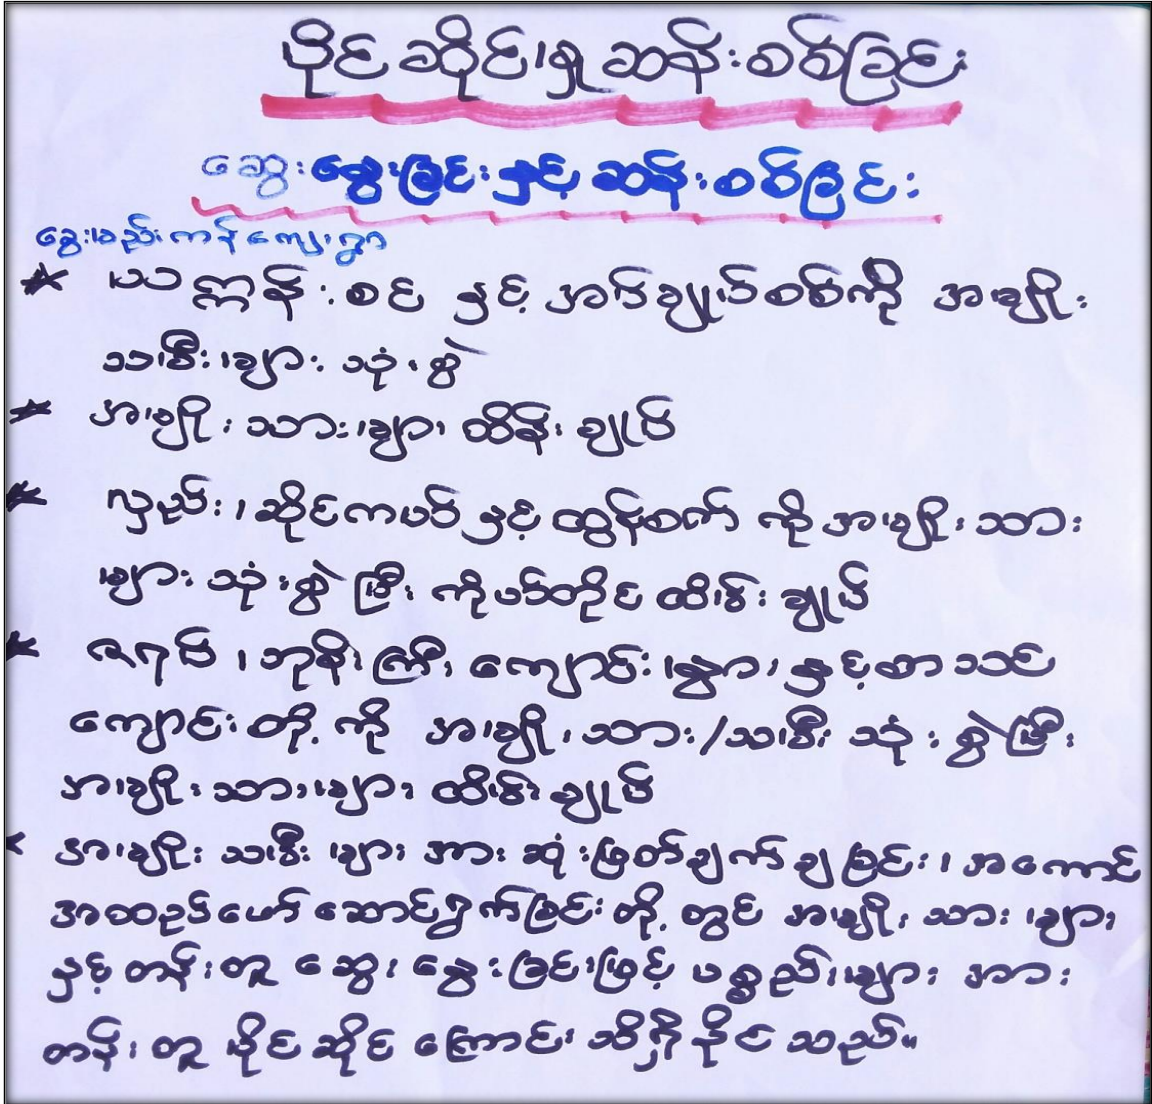 ပိုင်ဆိုင်မှု ဆန်းစစ်ခြင်း
ဆွေးနွေးခြင်းနှင့် ဆန်းစစ်ခြင်း
နွေးမည်းကန်ကျေးရွာ
* ယက္ကန်းစင် နှင့် အပ်ချုပ်စက်ကို အမျိုး
သမီးများ သုံးစွဲ
* အမျိုးသားများ ထိန်းချုပ်
* လှည်း၊ ဆိုင်ကယ်နှင့် ထွန်စက် ကို အမျိုးသား
များ သုံးစွဲပြီး ကိုယ်တိုင် ထိမ်းချုပ်
* ဇရပ်၊ ဘုန်းကြီးကျောင်း၊ နွား နှင့် စာသင်
ကျောင်းတို့ကို အမျိုးသား/သမီး သုံးစွဲပြီး
အမျိုးသားများ ထိမ်းချုပ်
* အမျိုးသမီးများအား ဆုံးဖြတ်ချက်ချခြင်း၊ အကောင်
အထည်ဖော်ဆောင်ရွက်ခြင်းတို့တွင် အမျိုးသားများ
နှင့် တန်းတူ ဆွေးနွေးခြင်းဖြင့် ပစ္စည်းများအား
တန်းတူ ပိုင်ဆိုင်ကြောင်း သိရှိနိုင်သည်။